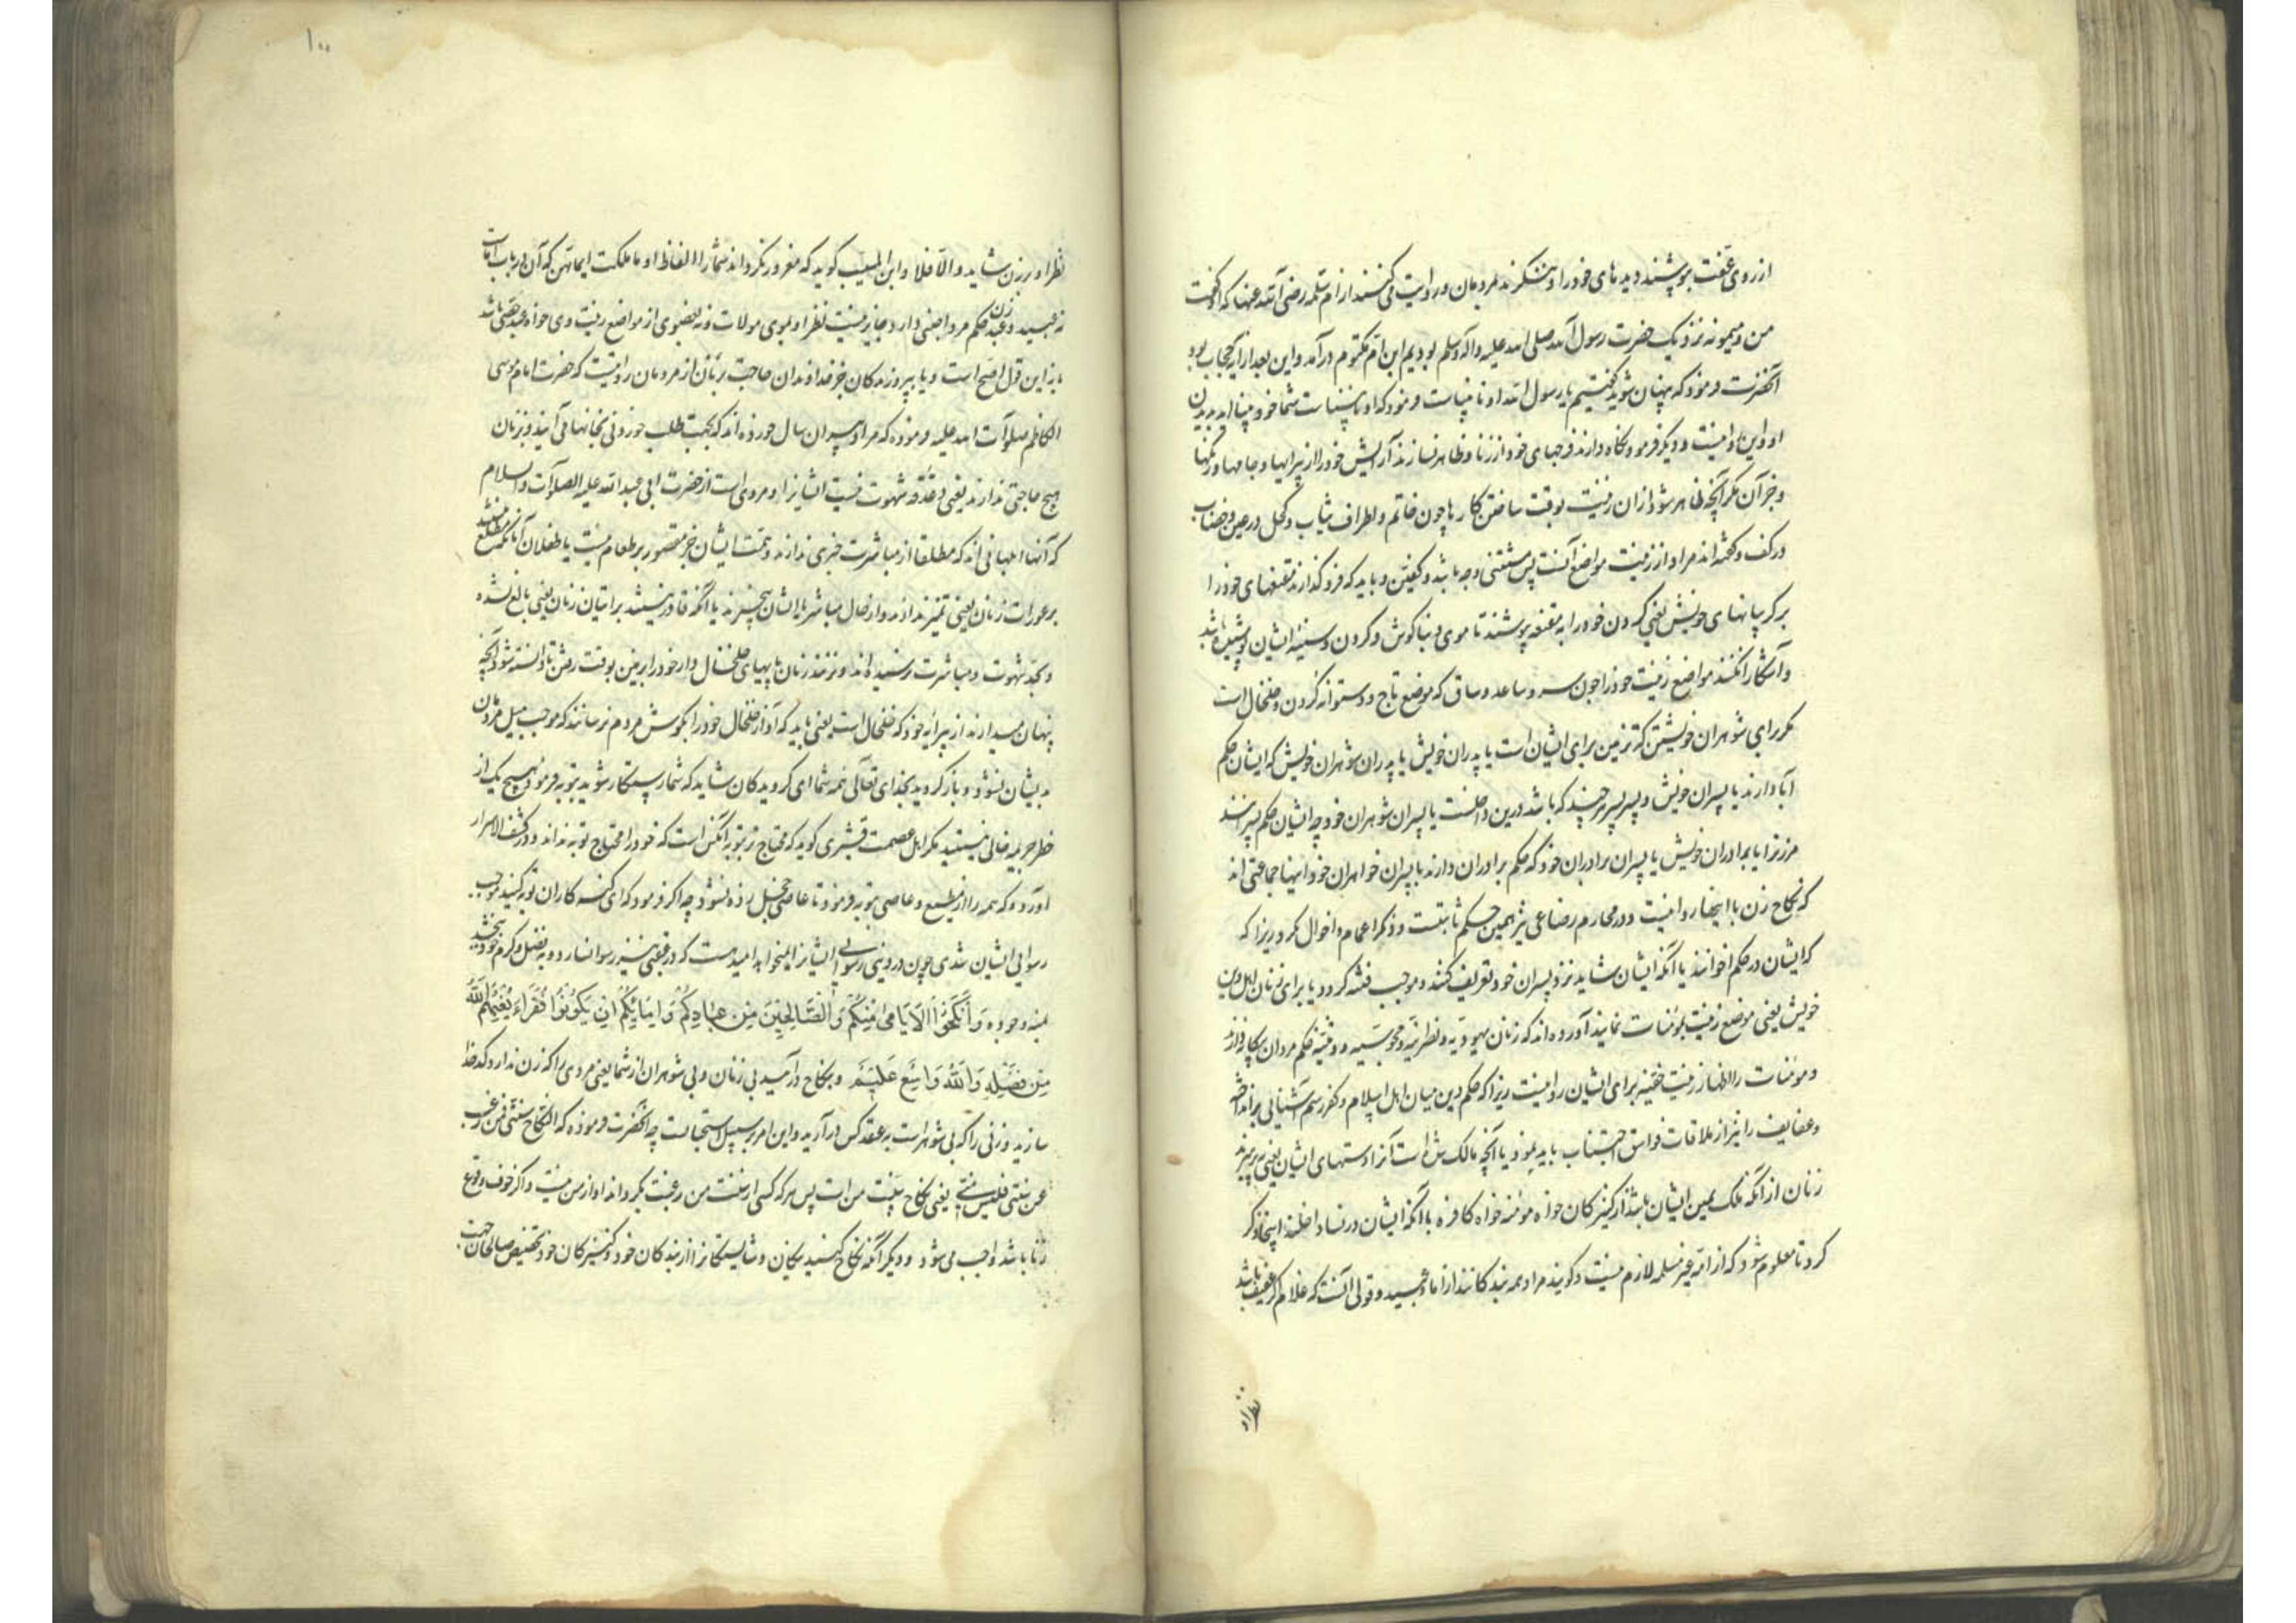 از روی عفت بپوشند دیدهای خود را و ننگرند بمردمان و روایت کنند از ام سلمه رضی الله عنها که او گفت
من و میمونه نزدیک حضرت رسول الله صلی الله علیه واله وسلم بودیم ابن ام مکتوم درآمد و این بعد از آیه حجاب بود
آنحضرت فرمود که پنهان شوید گفتیم یا رسول الله او نابیناست فرمود که او نابیناست شما خود بینااید بدیدن
او و این روا نیست و دیگر فرمود نگاه دارند فرجهای خود از زنا و ظاهر نسازند آرایش خود را از پیرایها و جامها و رنگها
و جز آن مگر آنچه ظاهر شود از ان زینت بوقت ساختن کارها چون خاتم و اطراف ثیاب و کحل در عین و خضاب
در کف و گفته اند مراد از زینت مواضع آنست پس مستثنی وجه باشد و کفین و باید که فرو گذارند مقنعهای خود را
بر گریبانهای خویش یعنی گردن خود را به مقنعه بپوشند تا موی و بناگوش و گردن و سینه ایشان پوشیده باشد
و آشکارا نکنند مواضع زینت خود را چون سر و ساعد و ساق که موضع تاج و دستوانه گردن و خلخال است
مگر برای شوهران خویشتن که تزیین برای ایشان است یا پدران خویش یا پدران شوهران خویش که ایشان حکم
آبا دارند یا پسران خویش و پسر پسر هرچند که باشد درین داخلست یا پسران شوهران خود چه ایشان حکم پسرانند
مرزنرا یا برادران خویش یا پسران برادران خود که حکم برادران دارند یا پسران خواهران خود و اینها جماعتی اند
که نکاح زن با اینها روا نیست و در محارم رضاعی نیز همین حکم ثابتست و ذکر اعمام و اخوال نکرد زیرا که
که ایشان در حکم اخوانند یا آنکه ایشان شاید نزد پسران خود تعریف کنند و موجب فتنه گردد یا برای زنان اهل دین
خویش یعنی موضع زینت بمومنات نمایند آورده اند که زنان یهودیه و نصرانیه و مجوسیه و وثنیه حکم مردان بیگانه دارند
و مومنات را اظهار زینت خفیه برای ایشان روا نیست زیرا که حکم دین میان اهل اسلام و کفر رسم آشنایی برانداخته
و عفایف را نیز از ملاقات فواسق اجتناب باید نمود یا آنچه مالک شده است آنرا دستهای ایشان یعنی بپرهیزند
زنان از آنکه ملک یمین ایشان باشد از کنیزکان خواه مومنه خواه کافره با آنکه ایشان در نسا داخلند اینجا ذکر
کرد تا معلوم شود که از امه غیر مسلمه لازم نیست و گویند مراد همه بندگانند از اما و عبید و قولی آنست که غلام اگر عفیف باشد
نظر او
۱۰۰
نظر او بر زن شاید و الا فلا و ابن المسیب گوید که مغرور نگرداند شما را الفاظ او ما ملکت ایمانهن که آن در باب اماست
نه عبید و عبد زن حکم مرد اجنبی دارد و جایز نیست نظر او بموی مولات و نه بعضوی از مواضع زینت وی خواه عبد خصی باشد
یا نه این قول اصح است و یا پیروزندگان جز خداوندان حاجت بزنان از مردمان روایتست که حضرت امام موسی
الکاظم صلوات الله علیه فرموده که مراد پیران سال خورده اند که بجهت طلب خوردنی بخانها می آیند و بزنان
هیچ حاجتی ندارند یعنی دغدغه شهوت نیست ایشانرا و مروی است از حضرت ابی عبدالله علیه الصلوات والسلام
که آنها ابلهانی اند که مطلقا از مباشرت خبری ندارند و همت ایشان جز مقصور بر طعام نیست یا طفلان آنانکه مطلع نیستند
بر عورات زنان یعنی تمیز ندارند و از حال مباشرت با ایشان بیخبرند یا آنکه قادر نیستند بر اتیان زنان یعنی بالغ نشده
و بحد شهوت و مباشرت نرسیده اند و نزنند زنان پایهای خلخال دار خود را بر زمین بوقت رفتن تا دانسته شود آنچه
پنهان میدارند از پیرایه خود که خلخال است یعنی باید که آواز خلخال خود را بگوش مردم نرسانند که موجب میل مردان
بدیشان نشود و باز گردید بخدای تعالی همه شما ای گرویدگان شاید که شما رستگار شوید بتوبه فرمود هیچ یک از
خطر جریمه خالی نیستند مگر اهل عصمت قشیری گوید که محتاج تر بتوبه آنکس است که خود را محتاج توبه نداند و در کشف الاسرار
آورده که همه را از مطیع و عاصی بتوبه فرمود تا عاصی خجل زده نشود چه اگر فرمودی که ای گنه کاران توبه کنید موجب
رسوایی ایشان شدی چون در دنیا رسوایی ایشانرا نمیخواهد امیدست که در عقبی نیز رسوا نسازد و به فضل و کرم خود ببخشد
بمنه وجوده وَأَنكِحُوا الْأَيَامَى مِنكُمْ وَالصَّالِحِينَ مِنْ عِبَادِكُمْ وَإِمَائِكُمْ إِن يَكُونُوا فُقَرَاءَ يُغْنِهِمُ اللَّهُ
مِن فَضْلِهِ وَاللَّهُ وَاسِعٌ عَلِيمٌ و بنکاح درآمید بی زنان و بی شوهران از شما یعنی مردی را که زن ندارد کدخدا
سازید و زنی را که بی شوهر است به عقد کس درآرید و این امر بر سبیل استحبابست چه آنحضرت فرموده که النکاح سنتی فمن رغب
عن سنتی فلیس منی یعنی نکاح سنت من است پس هر که کسی از سنت من رغبت بگرداند او از من نیست و اگر خوف وقوع
زنا باشد واجب می شود و دیگر آنکه نکاح کنید نیکان و شایستگانرا از بندگان خود و کنیزکان خود تخصیص صالحان جهت